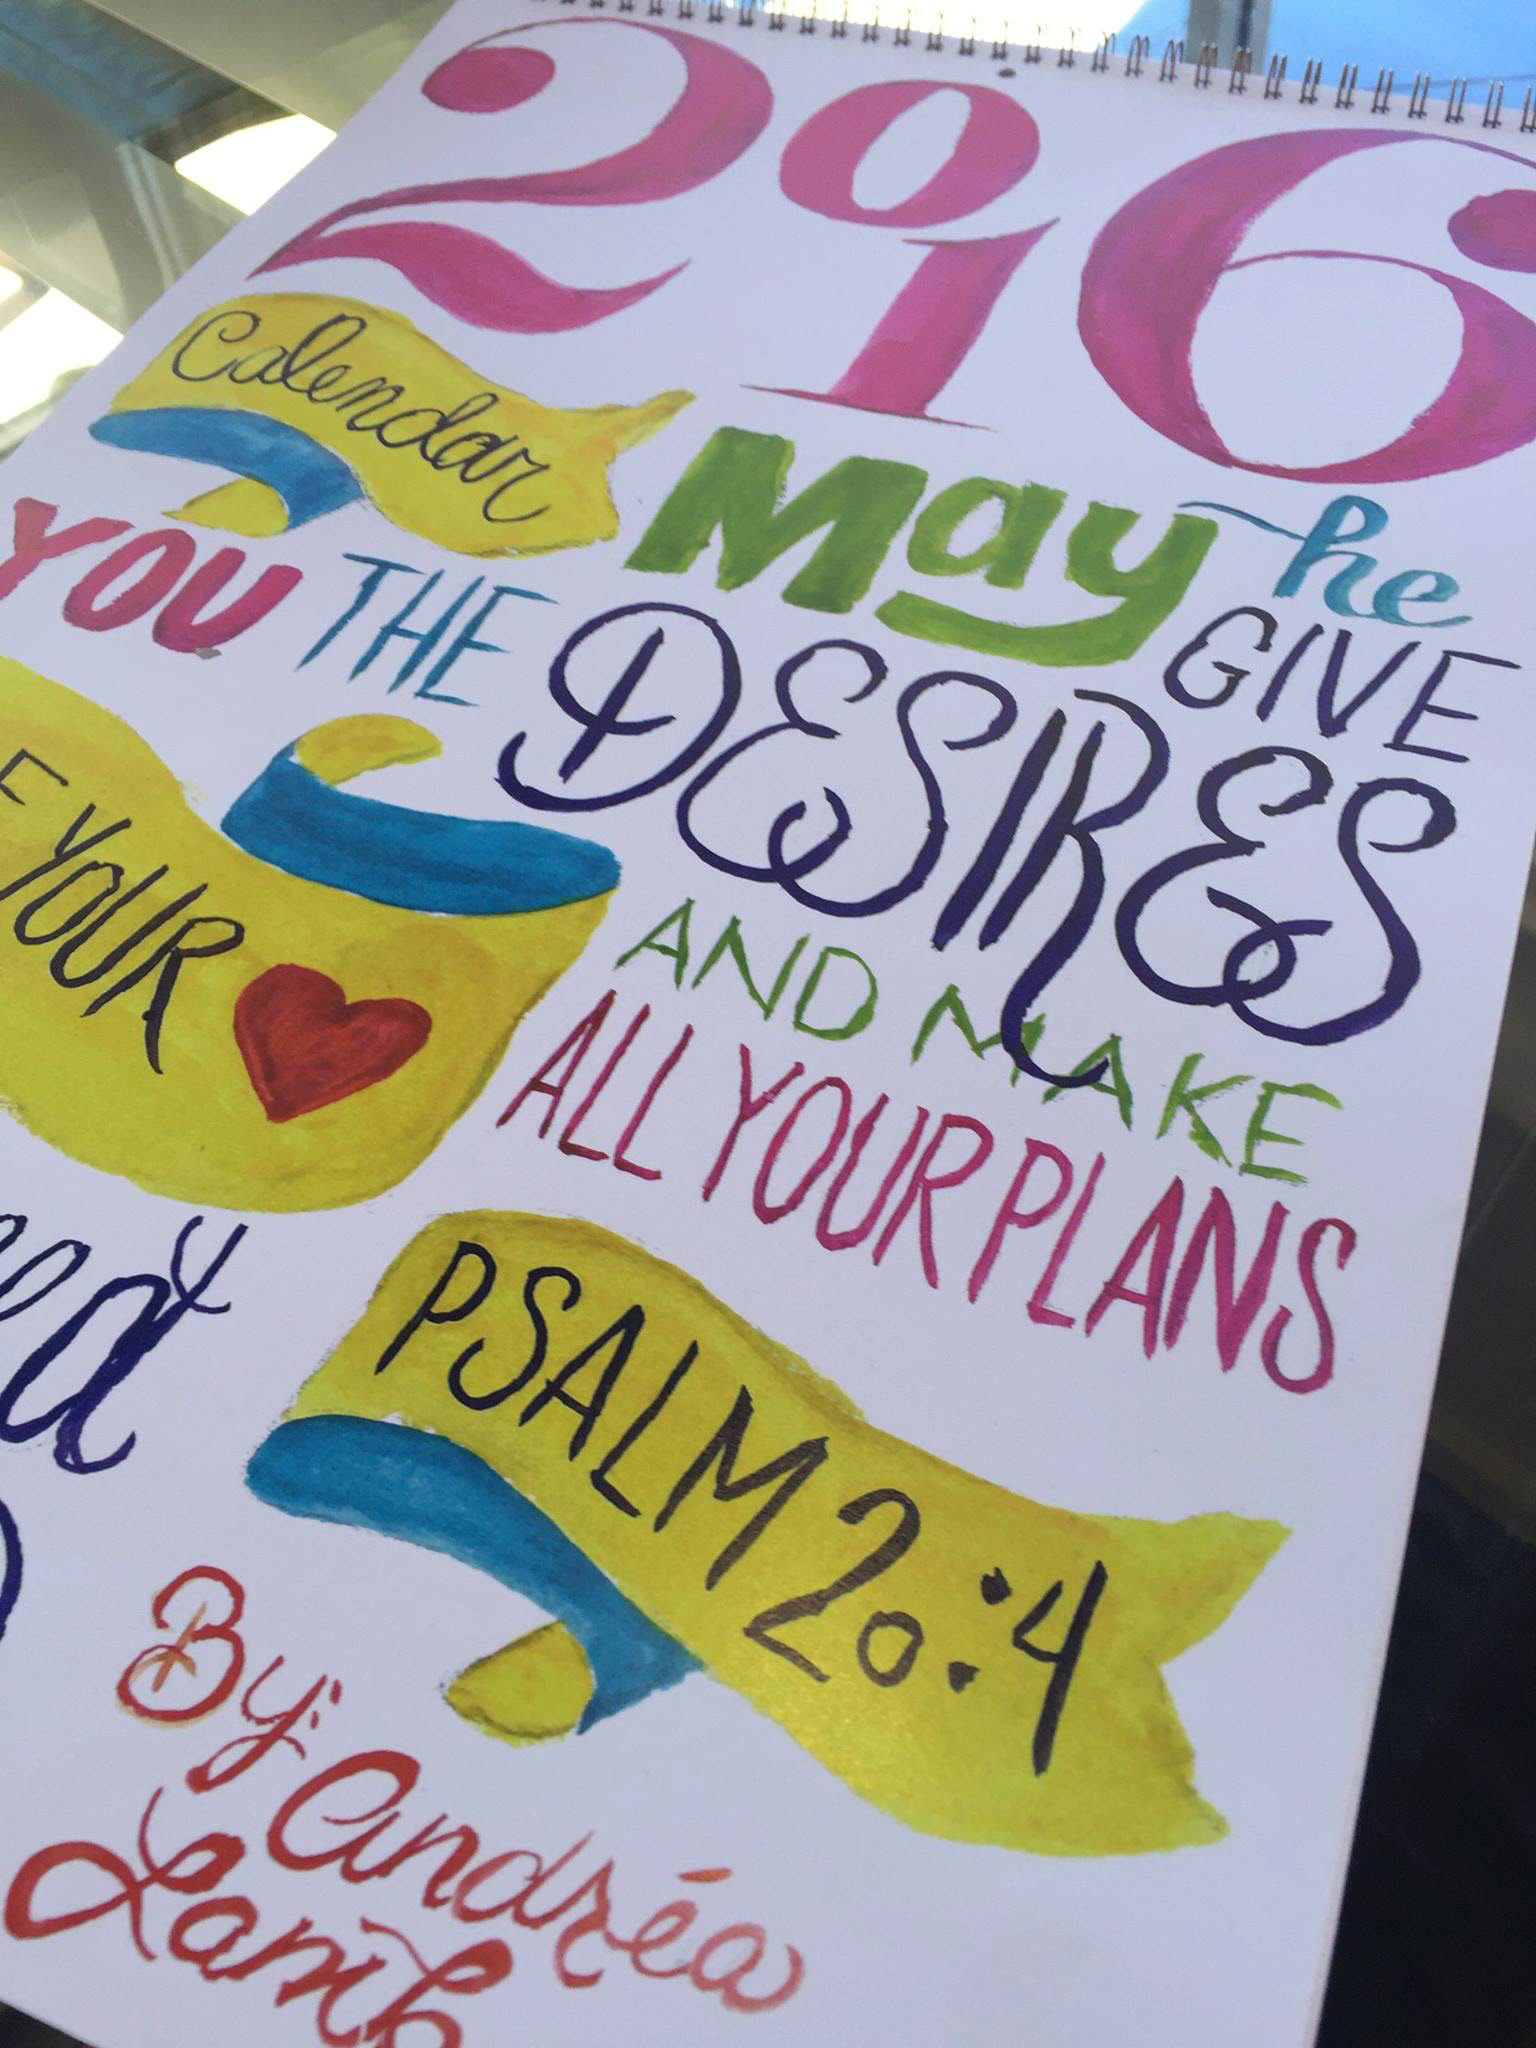 2016
Calendar
May he
GIVE
YOU THE DESIRES
YOUR
AND MAKE
ALL YOUR PLANS
PSALM 20:4
By:
Andréa